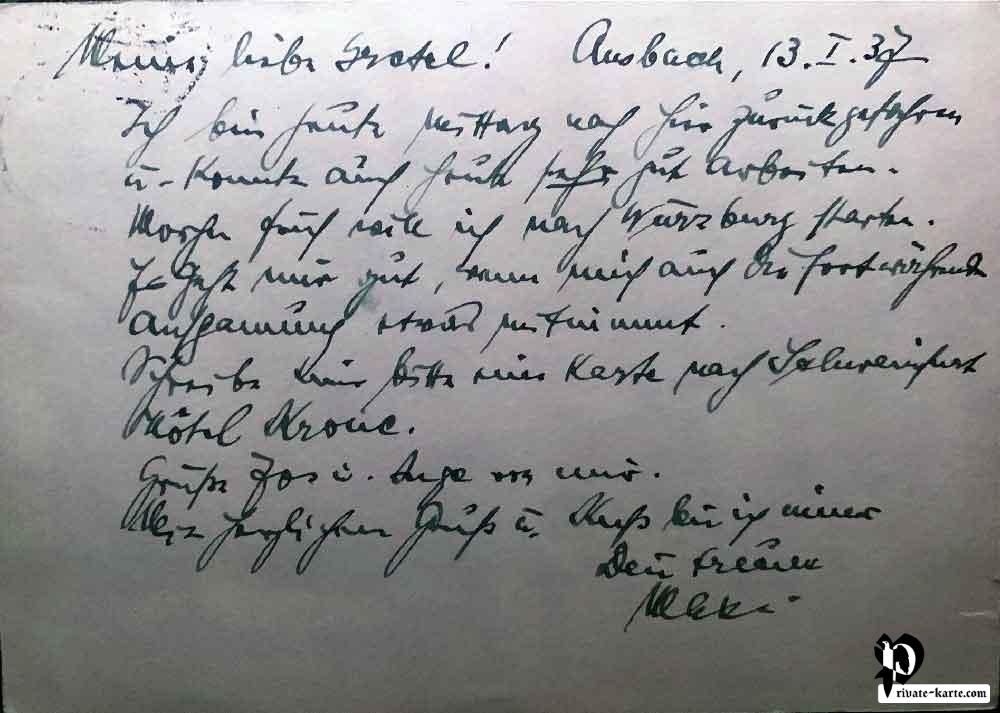 Meine liebe Gretel! Ansbach, 13.I.37
Ich bin heute mittag nach hier zurückgefahren
u. konnte auch heute sehr gut arbeiten.
Morgen früh will ich nach Würzburg starten.
Es geht mir gut, wenn mich auch die fortwährende
etwas mitnimmt.
Schreibe mir bitte eine Karte nach Schweinfurt
Hôtel Krone.
Grüße u. Inge von mir.
Mit herzlichem Gruß u. Kuß bin ich immer
Dein treuer
P
rivate-karte.com